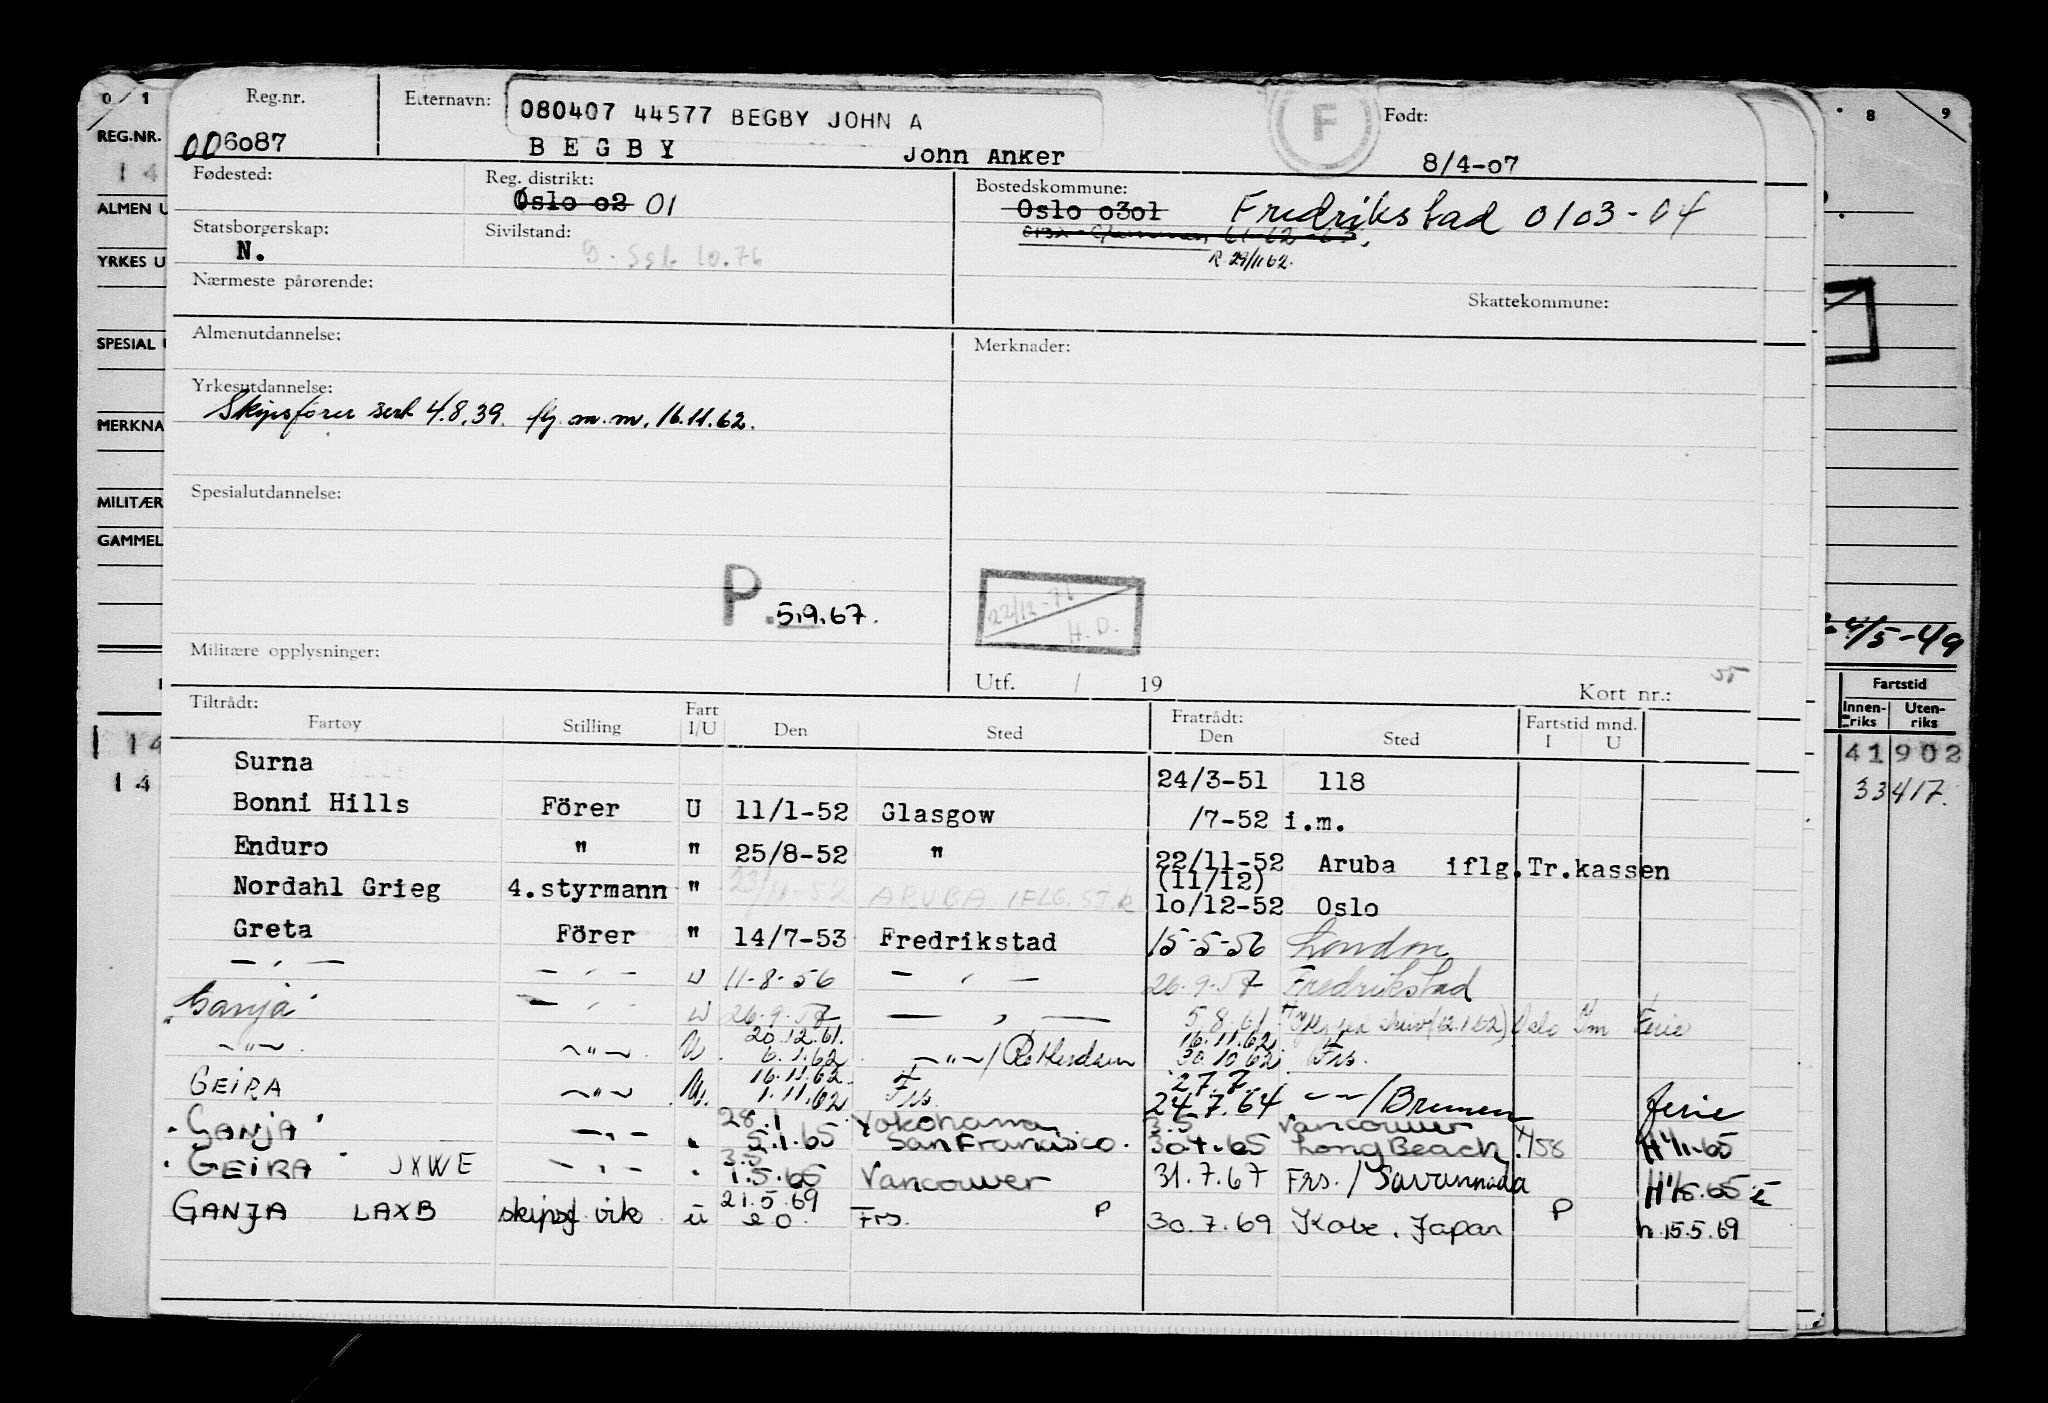 0 1 8 9
REG.NR.
14
ALMEN U
YRKES U
SPECIAL
MERKNA
MILITÆR
GAMMEL
Reg.nr. Etternavn: 080407 44577 BEGBY JOHN A F Født:
006087 BEGBY John Anker 8/4-07
Fødested: Reg. distrikt: Bostedskommune:
Oslo 02 01 Oslo 0301 Fredrikstad 0103-04
Statsborgerskap: Sivilstand: 61-62-63
N. 10.76 R. 29/11 62.
Nærmeste pårørende: Skattekommune:
Almenutdannelse: Merknader:
Yrkesutdannelse:
Skipsfører sert 4.8.39. flg. m.m. 16.11.62.
Spesialutdannelse:
P. 5.9.67. 22/12-71 H.D.
4/5-49
Militære opplysninger: Utf. / 19 Kort nr.: 55
Fartstid
Innen-riks Uten-riks
41902
33417.
Tiltrådt: Fart Fratrådt: Fartstid mnd.
Fartøy Stilling I/U Den Sted Den Sted I U
Surna 24/3-51 118
Bonni Hills Förer U 11/1-52 Glasgow /7-52 i.m.
Enduro " " 25/8-52 " 22/11-52 Aruba iflg.Tr.kassen
(11/12)
Nordahl Grieg 4.styrmann " 23/11-52 ARUBA IFLG. SJ.k 10/12-52 Oslo
Greta Förer " 14/7-53 Fredrikstad 15-5-56 London
— " — — " — u 11-8-56 — " — 26.9.57 Fredrikstad
Ganja — " — u 26.9.57 — " — 5.8.61 (12.1.62) Oslo Im Ferie
20.12.61. 16.11.62
— " — — " — U. 6.1.62 — " — / Rotterdam 30.10.62. Frs.
16.11.62 27.7.
GEIRA — " — U. 1.11.62 Frs. 24.7.64 — " — / Bremen ferie
28.1 Yokohama 3.5 Vancouver
GANJA — " — " 5.1.65 San Francisco. 30.4.65 Long Beach. 4158 H 1/1-65
3.5
GEIRA JXWE — " — " 1.5.65 Vancouver 31.7.67 Frs. / Savannada H 1/5.65
21.5.69
GANJA LAXB skipsf vik u e o. Frs. P 30.7.69 Kobe, Japan P h.15.5.69